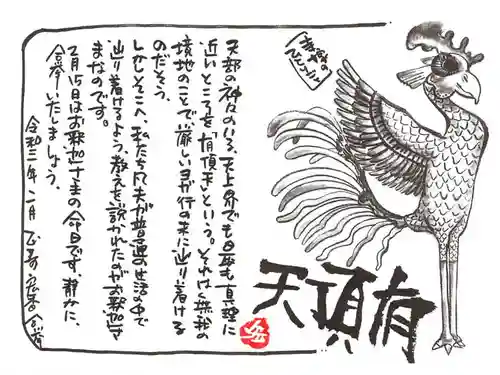 天部の神々のいる、天上界でも最も真理に
近いところを「有頂天」という。それは、無我の
境地のことで、厳しいヨガ行の末に辿り着ける
のだそう。
しかしそこへ、私たち凡夫が普通の生活の中で
辿り着けるよう教えを説かれたのがお釈迦さ
まなのです。
2月15日はお釈迦さまの命日です。静かに、
合掌いたしましょう。
令和二年 二月
有頂天